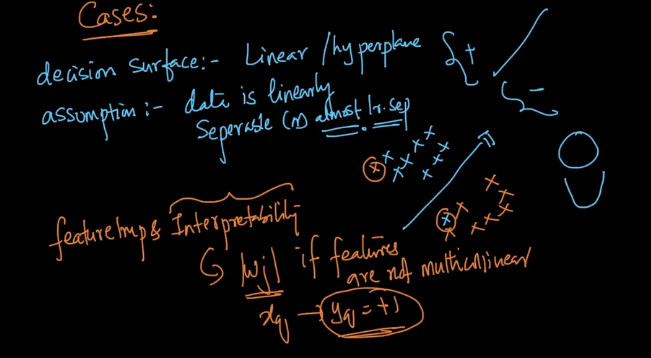 Cases:
decision surface:- Linear /hyperplane
assumption:- data is linearly
Seperable (or) almost lr. sep
feature Imp & Interpretability
|wj| if features
are not multicollinear
xq → yq = +1